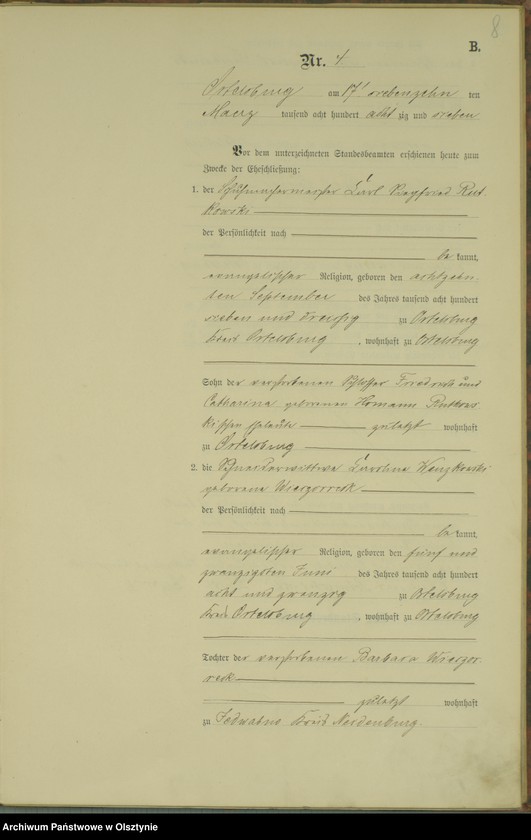 8
B.
Nr. 4
Ortelsburg am 17' siebenzehn ten
Maerz tausend acht hundert acht zig und sieben
Vor dem unterzeichneten Standesbeamten erschienen heute zum
Zwecke der Eheschließung:
1. der Schuhmachermeister Carl Siegfried Rut
kowski
der Persönlichkeit nach
be kannt,
evangelischer Religion, geboren den achtzehn
ten September des Jahres tausend acht hundert
sieben und dreissig zu Ortelsburg
Kreis Ortelsburg, wohnhaft zu Ortelsburg
Sohn der verstorbenen Schlosser Friedrich und
Catharina geborenen Homann Rutkow
kischen Eheleute zuletzt wohnhaft
zu Ortelsburg
2. die Schneiderwittwe Caroline
geborene Wieczorrek
der Persönlichkeit nach
be kannt,
evangelischer Religion, geboren den fünf und
zwanzigsten Juni des Jahres tausend acht hundert
acht und zwanzig zu Ortelsburg
Kreis Ortelsburg, wohnhaft zu Ortelsburg
Tochter der verstorbenen Barbara Wieczor
rek
zuletzt wohnhaft
zu Jedwabno Kreis Neidenburg.
Archiwum Państwowe w Olsztynie